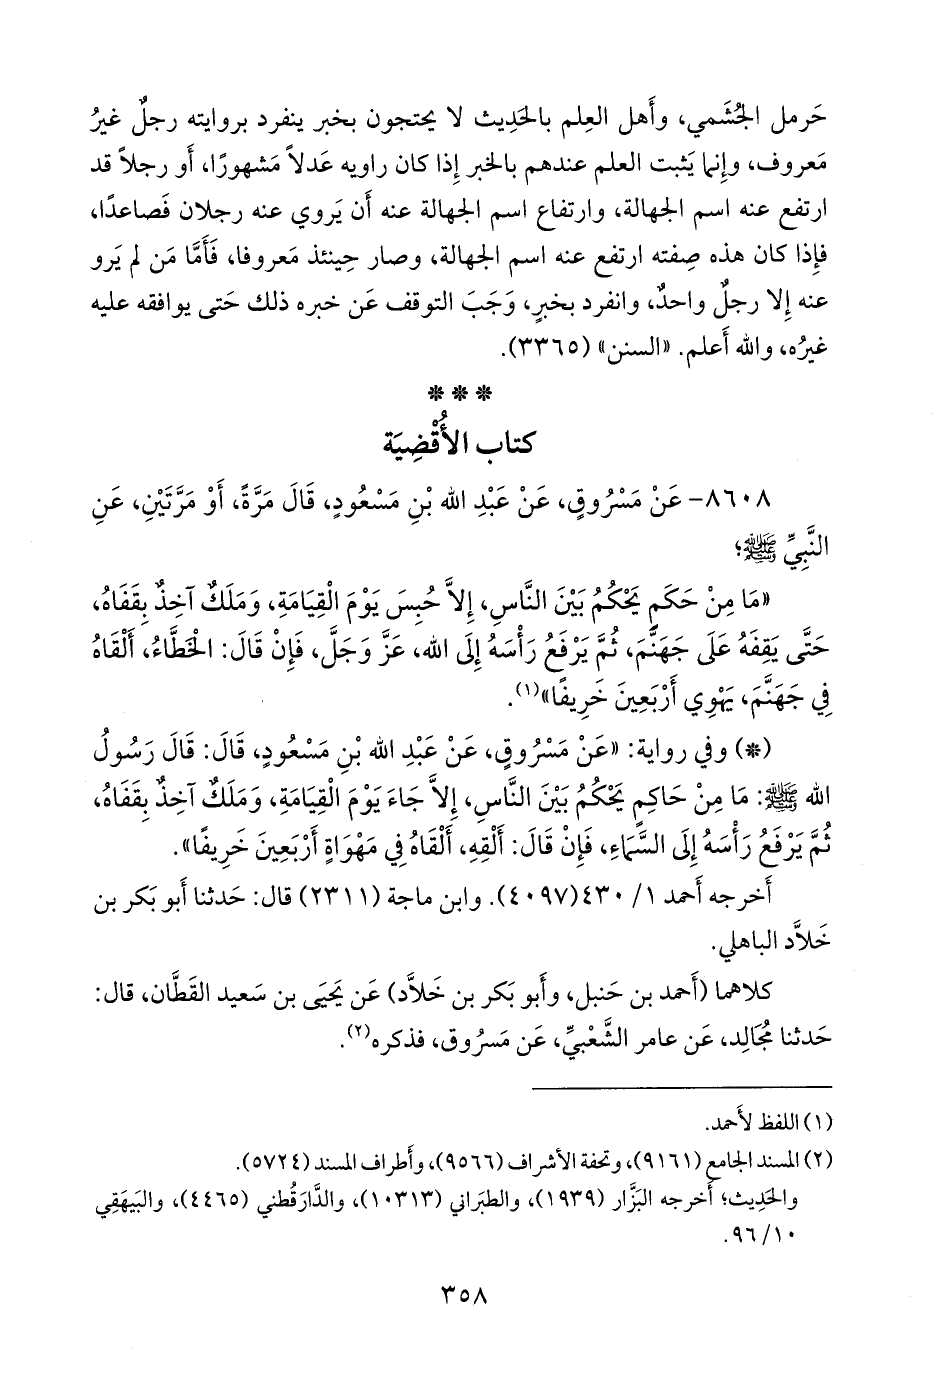 حَرمل الجُشَمي، وأَهل العِلم بالحَدِيث لا يحتجون بخبر ينفرد بروايته رجلٌ غيرُ
مَعروف، وإِنما يَثبت العلم عندهم بالخبر إِذا كان راويه عَدلاً مَشهورًا، أَو رجلاً قد
ارتفع عنه اسم الجهالة، وارتفاع اسم الجهالة عنه أَن يَروي عنه رجلان فَصاعدًا،
فإِذا كان هذه صِفته ارتفع عنه اسم الجهالة، وصار حِينئذ مَعروفا، فَأَمَّا مَن لم يَرو
عنه إِلا رجلٌ واحدٌ، وانفرد بخبرٍ، وَجَبَ التوقف عَن خبره ذلك حَتى يوافقه عليه
غيرُه، والله أَعلم. «السنن» (٣٣٦٥).
* * *
كتاب الأَقْضِيَة
٨٦٠٨- عَنْ مَسْرُوقٍ، عَنْ عَبْدِ الله بْنِ مَسْعُودٍ، قَالَ مَرَّةً، أَوْ مَرَّتَيْنِ، عَنِ
النَّبِيِّ ﷺ؛
«مَا مِنْ حَكَمٍ يَحْكُمُ بَيْنَ النَّاسِ، إِلاَّ حُبِسَ يَوْمَ الْقِيَامَةِ، وَمَلَكٌ آخِذٌ بِقَفَاهُ،
حَتَّى يَقِفَهُ عَلَى جَهَنَّمَ، ثُمَّ يَرْفَعُ رَأْسَهُ إِلَى الله، عَزَّ وَجَلَّ، فَإِنْ قَالَ: الْخَطَّاءُ، أَلْقَاهُ
فِي جَهَنَّمَ، يَهْوِي أَرْبَعِينَ خَرِيفًا»(١).
(*) وفي رواية: «عَنْ مَسْرُوقٍ، عَنْ عَبْدِ الله بْنِ مَسْعُودٍ، قَالَ: قَالَ رَسُولُ
الله ﷺ: مَا مِنْ حَاكِمٍ يَحْكُمُ بَيْنَ النَّاسِ، إِلاَّ جَاءَ يَوْمَ الْقِيَامَةِ، وَمَلَكٌ آخِذٌ بِقَفَاهُ،
ثُمَّ يَرْفَعُ رَأْسَهُ إِلَى السَّمَاءِ، فَإِنْ قَالَ: أَلْقِهِ، أَلْقَاهُ فِي مَهْوَاةٍ أَرْبَعِينَ خَرِيفًا».
أَخرجه أَحمد ١/ ٤٣٠(٤٠٩٧). وابن ماجة (٢٣١١) قال: حَدثنا أَبو بَكر بن
خَلاَّد الباهلي.
كلاهما (أَحمد بن حَنبل، وأَبو بَكر بن خَلاَّد) عَن يَحيَى بن سَعيد القَطَّان، قال:
حَدثنا مُجَالِد، عَن عامر الشَّعْبيِّ، عَن مَسرُوق، فذكره(٢).
(١) اللفظ لأَحمد.
(٢) المسند الجامع (٩١٦١)، وتحفة الأشراف (٩٥٦٦)، وأَطراف المسند (٥٧٢٤).
والحَدِيث؛ أَخرجه البَزَّار (١٩٣٩)، والطبراني (١٠٣١٣)، والدَّارَقُطني (٤٤٦٥)، والبَيهَقِي
١٠/ ٩٦.
٣٥٨